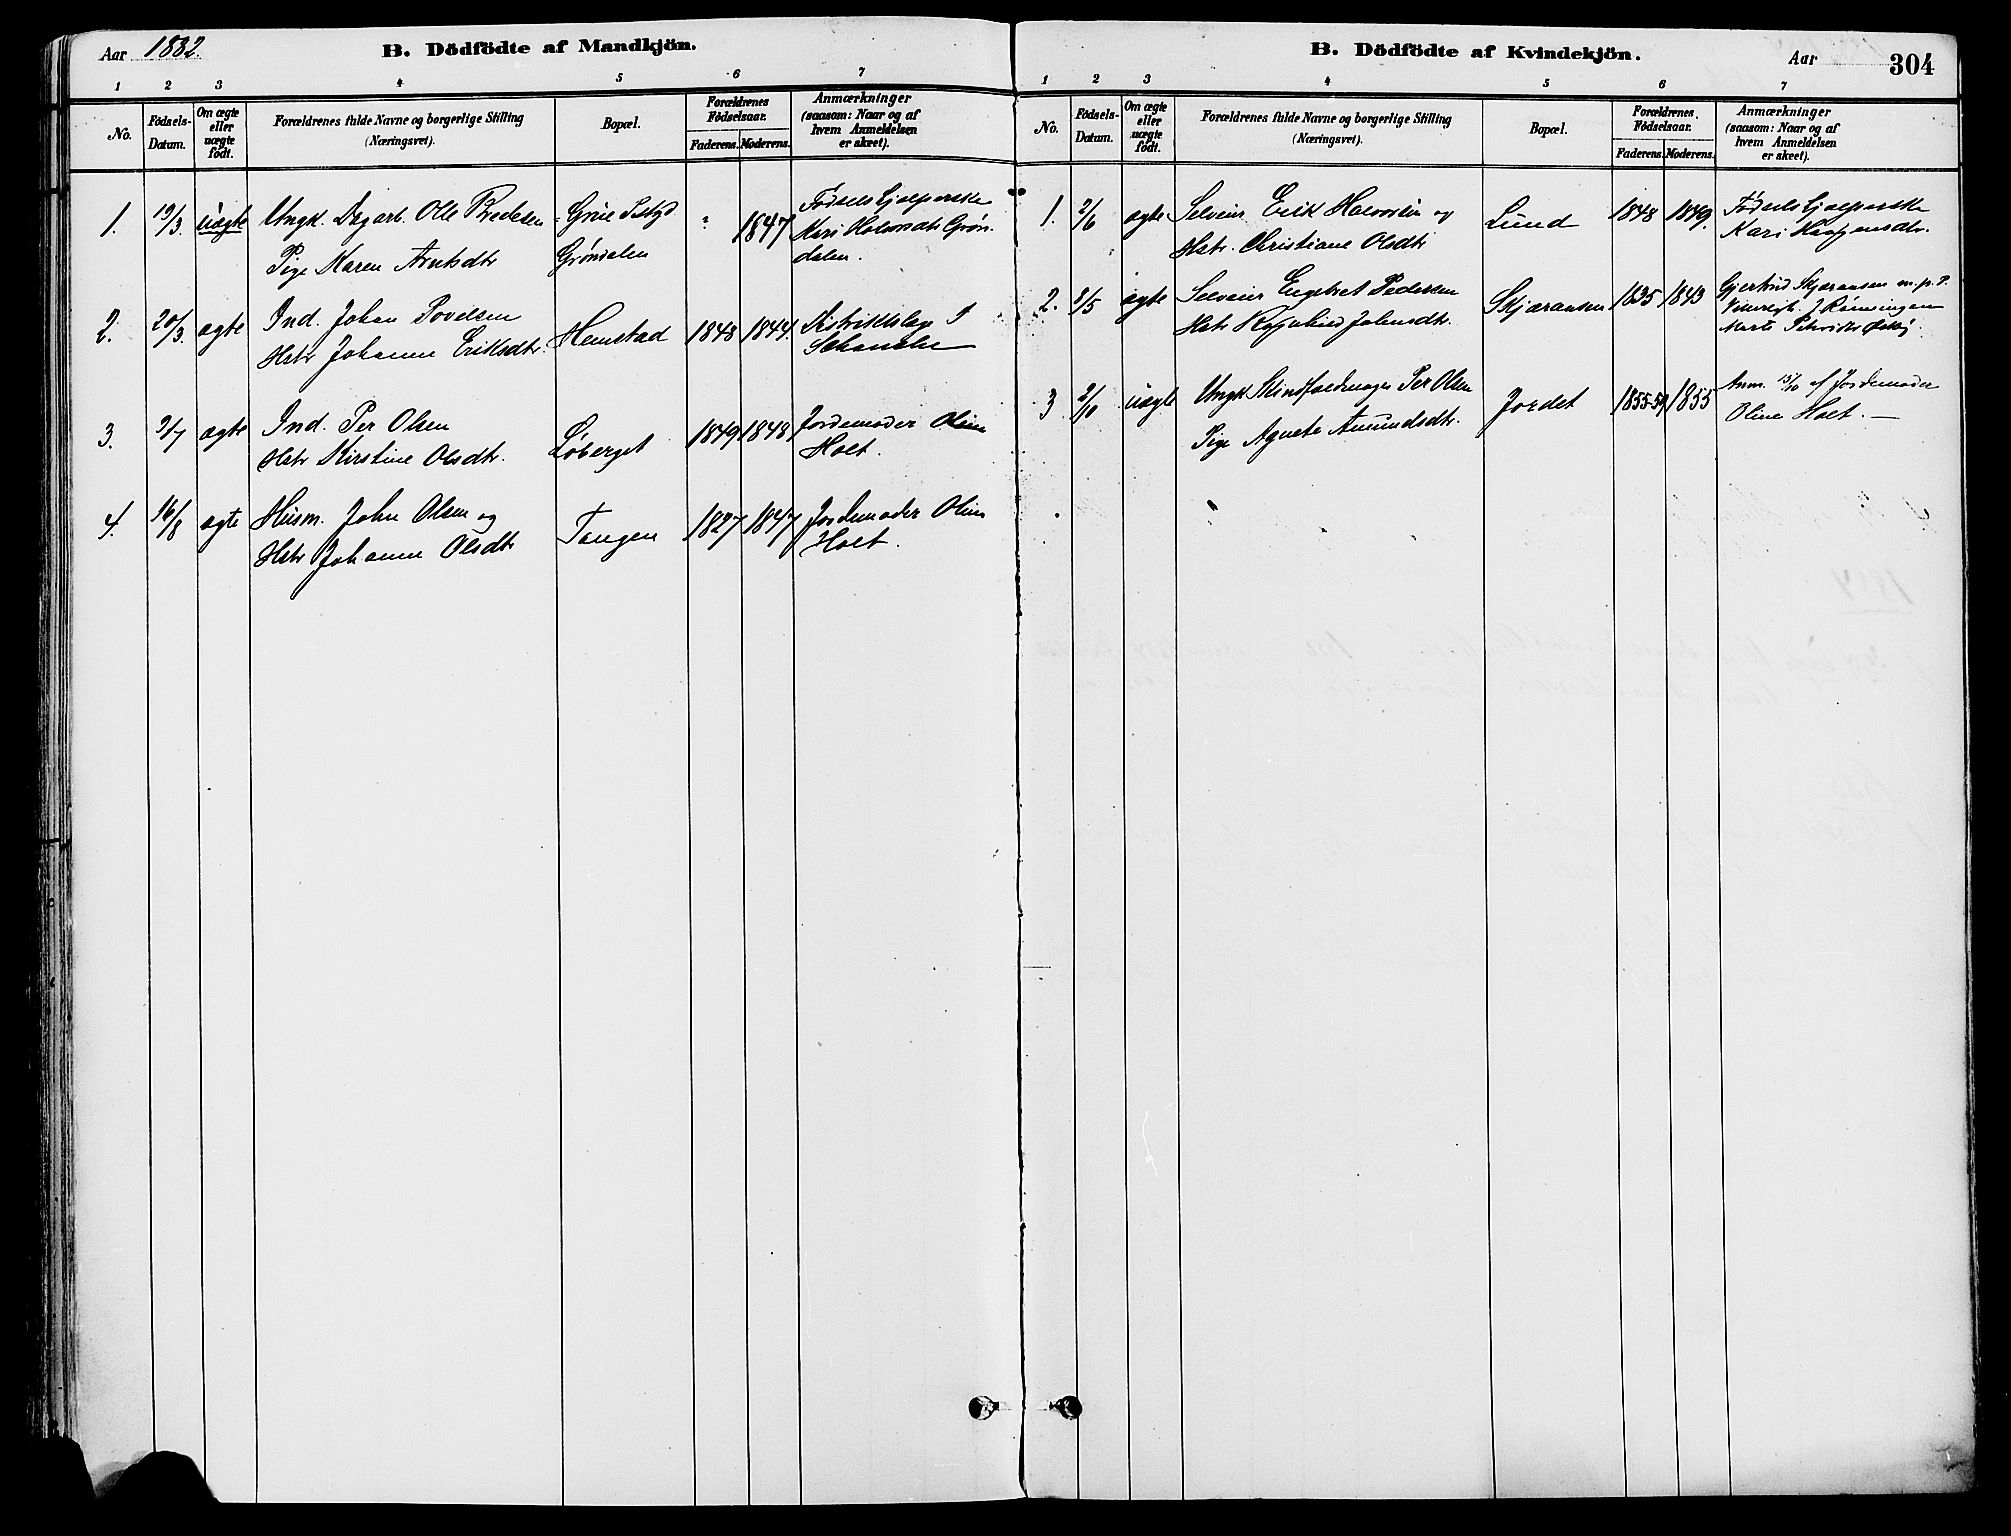 Aar 1882.
B. Dödfödte af Mandkjön.
1 2 3 4 5 6 7
No.
Födsels-
Datum.
Om ægte
eller
uægte
födt.
Forældrenes fulde Navne og borgerlige Stilling
(Næringsvei).
Bopæl.
Forældrenes
Födselsaar.
Faderens. Moderens.
Anmærkninger
(saasom: Naar og af
hvem Anmeldelsen
er skeet).
1. 19/3. uægte Ungk. Dagarb. Olle Bredesen Grue 1847 Fødselshjælperske
Pige Karen Arntsdtr Grøndalen Kari Halvorsdtr Grøn-
dalen.
2. 20/3. ægte Ind. Johan Povelsen Hemstad 1848 1844. Distriktslæge
Hstr Johanne Eriksdtr.
3. 9/7 ægte Ind. Per Olsen Løberget 1849 1848 Jordemoder Oline
Hstr Kirstine Olsdtr. Holt.
4. 16/8 ægte Husm. John Olsen og Tangen 1827 1847 Jordemoder Oline
Hstr Johanne Olsdtr Holt.
B. Dödfödte af Kvindekjön.
Aar
304
1 2 3 4 5 6 7
No.
Födsels-
Datum.
Om ægte
eller
uægte
födt.
Forældrenes fulde Navne og borgerlige Stilling
(Næringsvei).
Bopæl.
Forældrenes.
Födselsaar.
Faderens. Moderens.
Anmærkninger
(saasom: Naar og af
hvem Anmeldelsen
er skeet).
1. 2/6 ægte Selveier Erik Halvorsen og Lund 1848 1849. Fødselshjælperske
Hstr. Christiane Olsdtr Kari
2. 3/5 ægte Selveier Engebret Pedersen Skjæraasen 1835 1843 Gjertrud Skjæraasen
Hstr Johnsdtr. Rønningen
Marte
3 2/10 uægte Ungk Per Olsen Jordet 1855 Anm. 15/10 af Jordemoder
Pige Agnete Amundsdtr. Oline Holt.